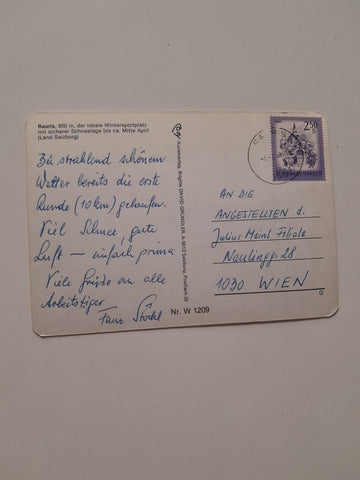 Rauris, 950 m, der ideale Wintersportplatz
mit sicherer Schneelage bis ca. Mitte April
(Land Salzburg)
Bei strahlend schönem
Wetter bereits die erste
Runde (10 km) gelaufen.
Viel Schnee, gute
Luft — einfach prima
Viele Grüße an alle
Arbeitstiger
Fam.
Kunstverlag, Brigitte DAVID GRÜNDLER, A-5013 Salzburg, Postfach 30
Nr. W 1209
2.50
S
REPUBLIK ÖSTERREICH
AN DIE
ANGESTELLTEN d.
Julius Meinl Filiale
Neulingg. 28
1030 WIEN